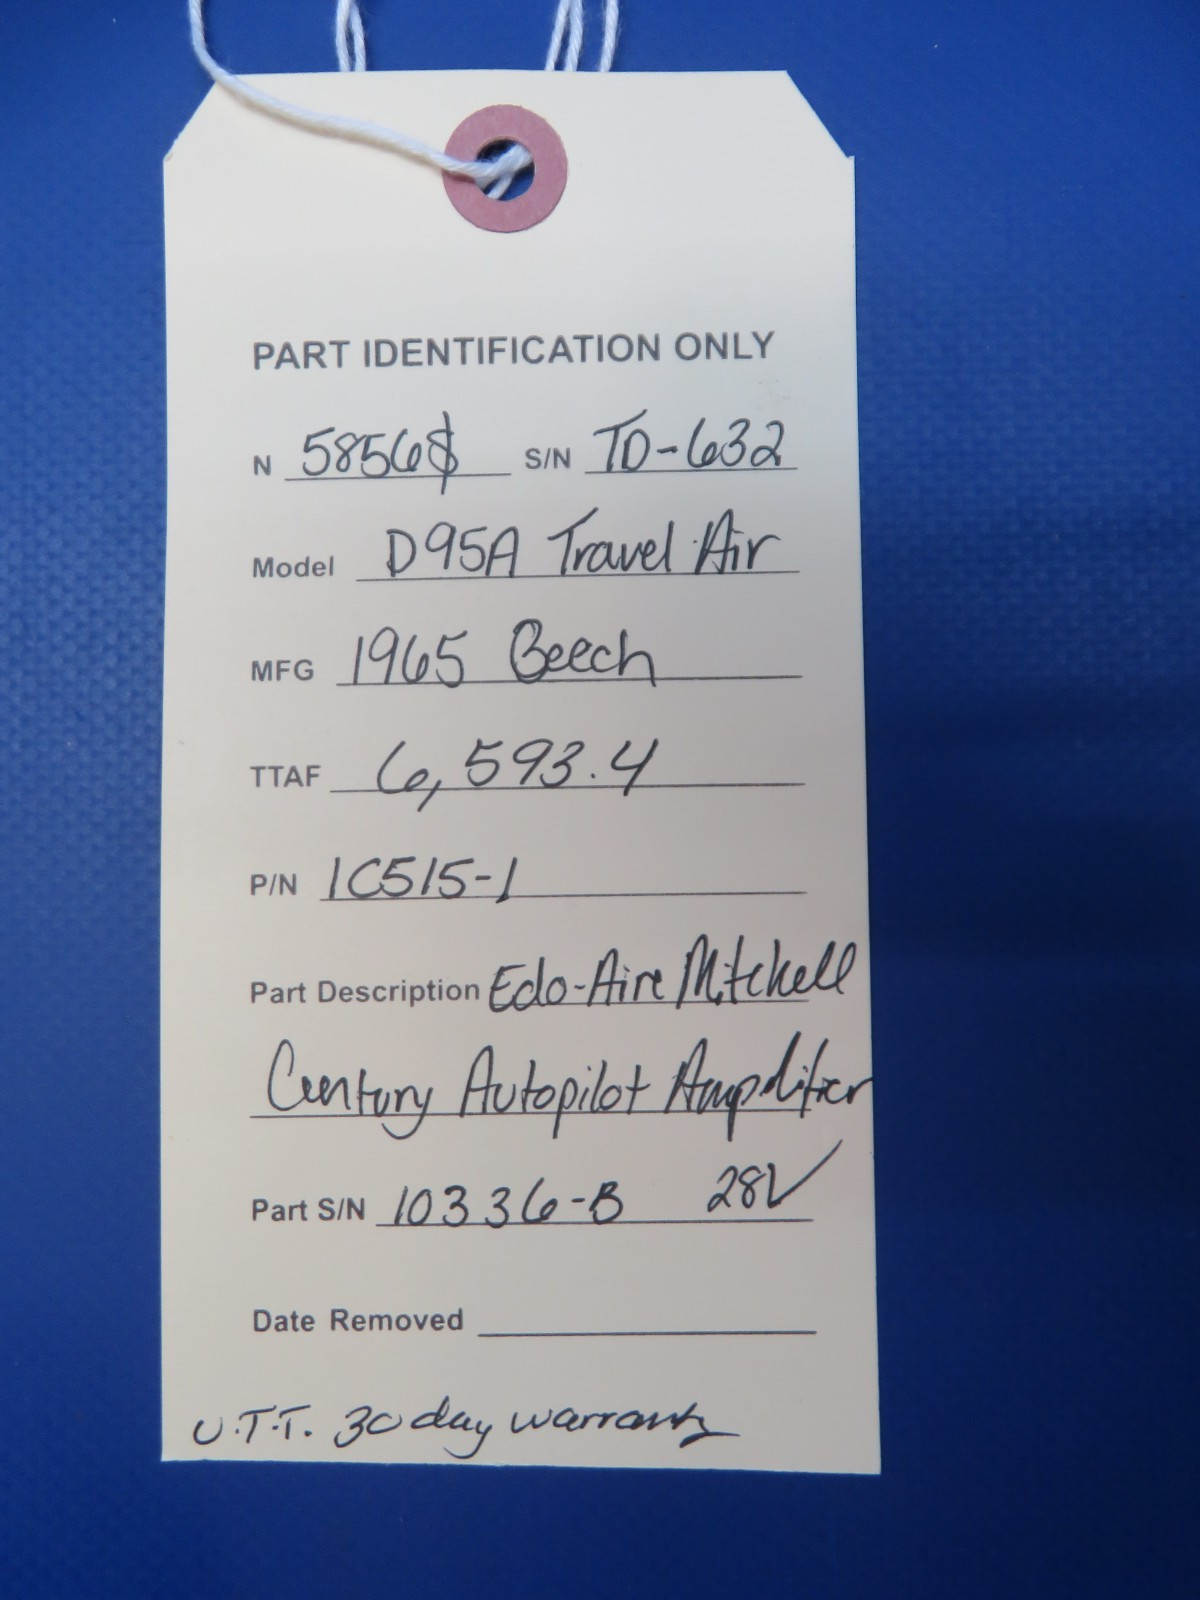 PART IDENTIFICATION ONLY
N 5856$ S/N TD-632
Model D95A Travel Air
MFG 1965 Beech
TTAF 6,593.4
P/N 1C515-1
Part Description Edo-Aire Mitchell
Century Autopilot Amplifier
Part S/N 10336-B 28V
Date Removed
U.T.T. 30 day warranty